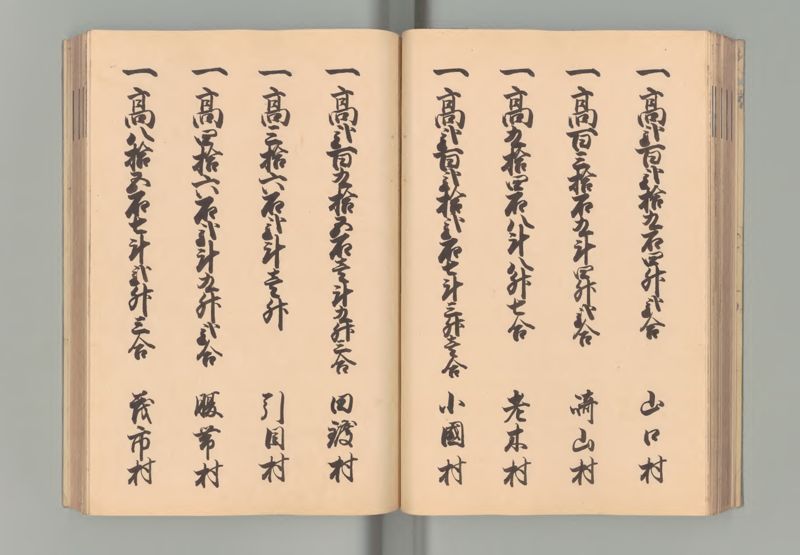 一高弐百弐拾九石四升弐合 山口村
一高百三拾石九斗四升弐合 崎山村
一高九拾四石八斗八升七合 老木村
一高弐百弐拾弐石七斗三升壱合 小國村
一高弐百九拾五石壱斗九升三合 田鎖村
一高三拾六石弐斗壱升 引目村
一高四拾六石弐斗九升弐合 腹帯村
一高八拾五石七斗弐升三合 茂市村